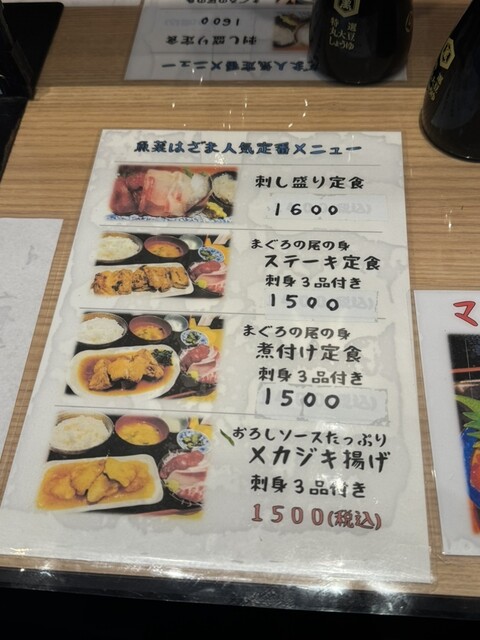 1600
刺し盛り定食
特選
丸大豆
しょうゆ
魚菜はざま人気定番メニュー
刺し盛り定食
1600
まぐろの尾の身
ステーキ定食
刺身3品付き
1500
まぐろの尾の身
煮付け定食
刺身3品付き
1500
おろしソースたっぷり
メカジキ揚げ
刺身3品付き
1500(税込)
マ